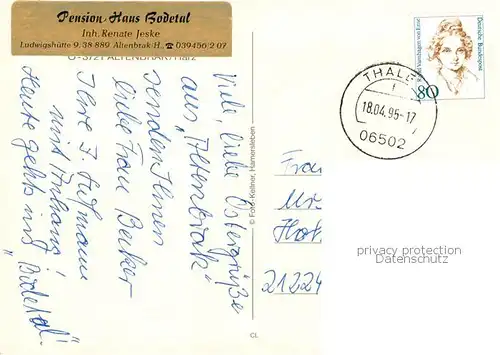 Pension Haus Bodetal
Inh. Renate Jeske
Ludwigshütte 9, 38 889 Altenbrak/H., ☎ 039456/2 07
Viele, liebe Ostergrüße
aus „Altenbrak"
senden Ihnen
liebe Frau Becker
Ihre J. Hofmann
mit Anhang!
Heute geht's ins „Bodetal"!
© Foto-Kellner, Hamersleben
CL
Deutsche Bundespost
Rahel Varnhagen von Ense
80
THALE
1
18.04.95-17
06502
Frau
21224
privacy protection
Datenschutz